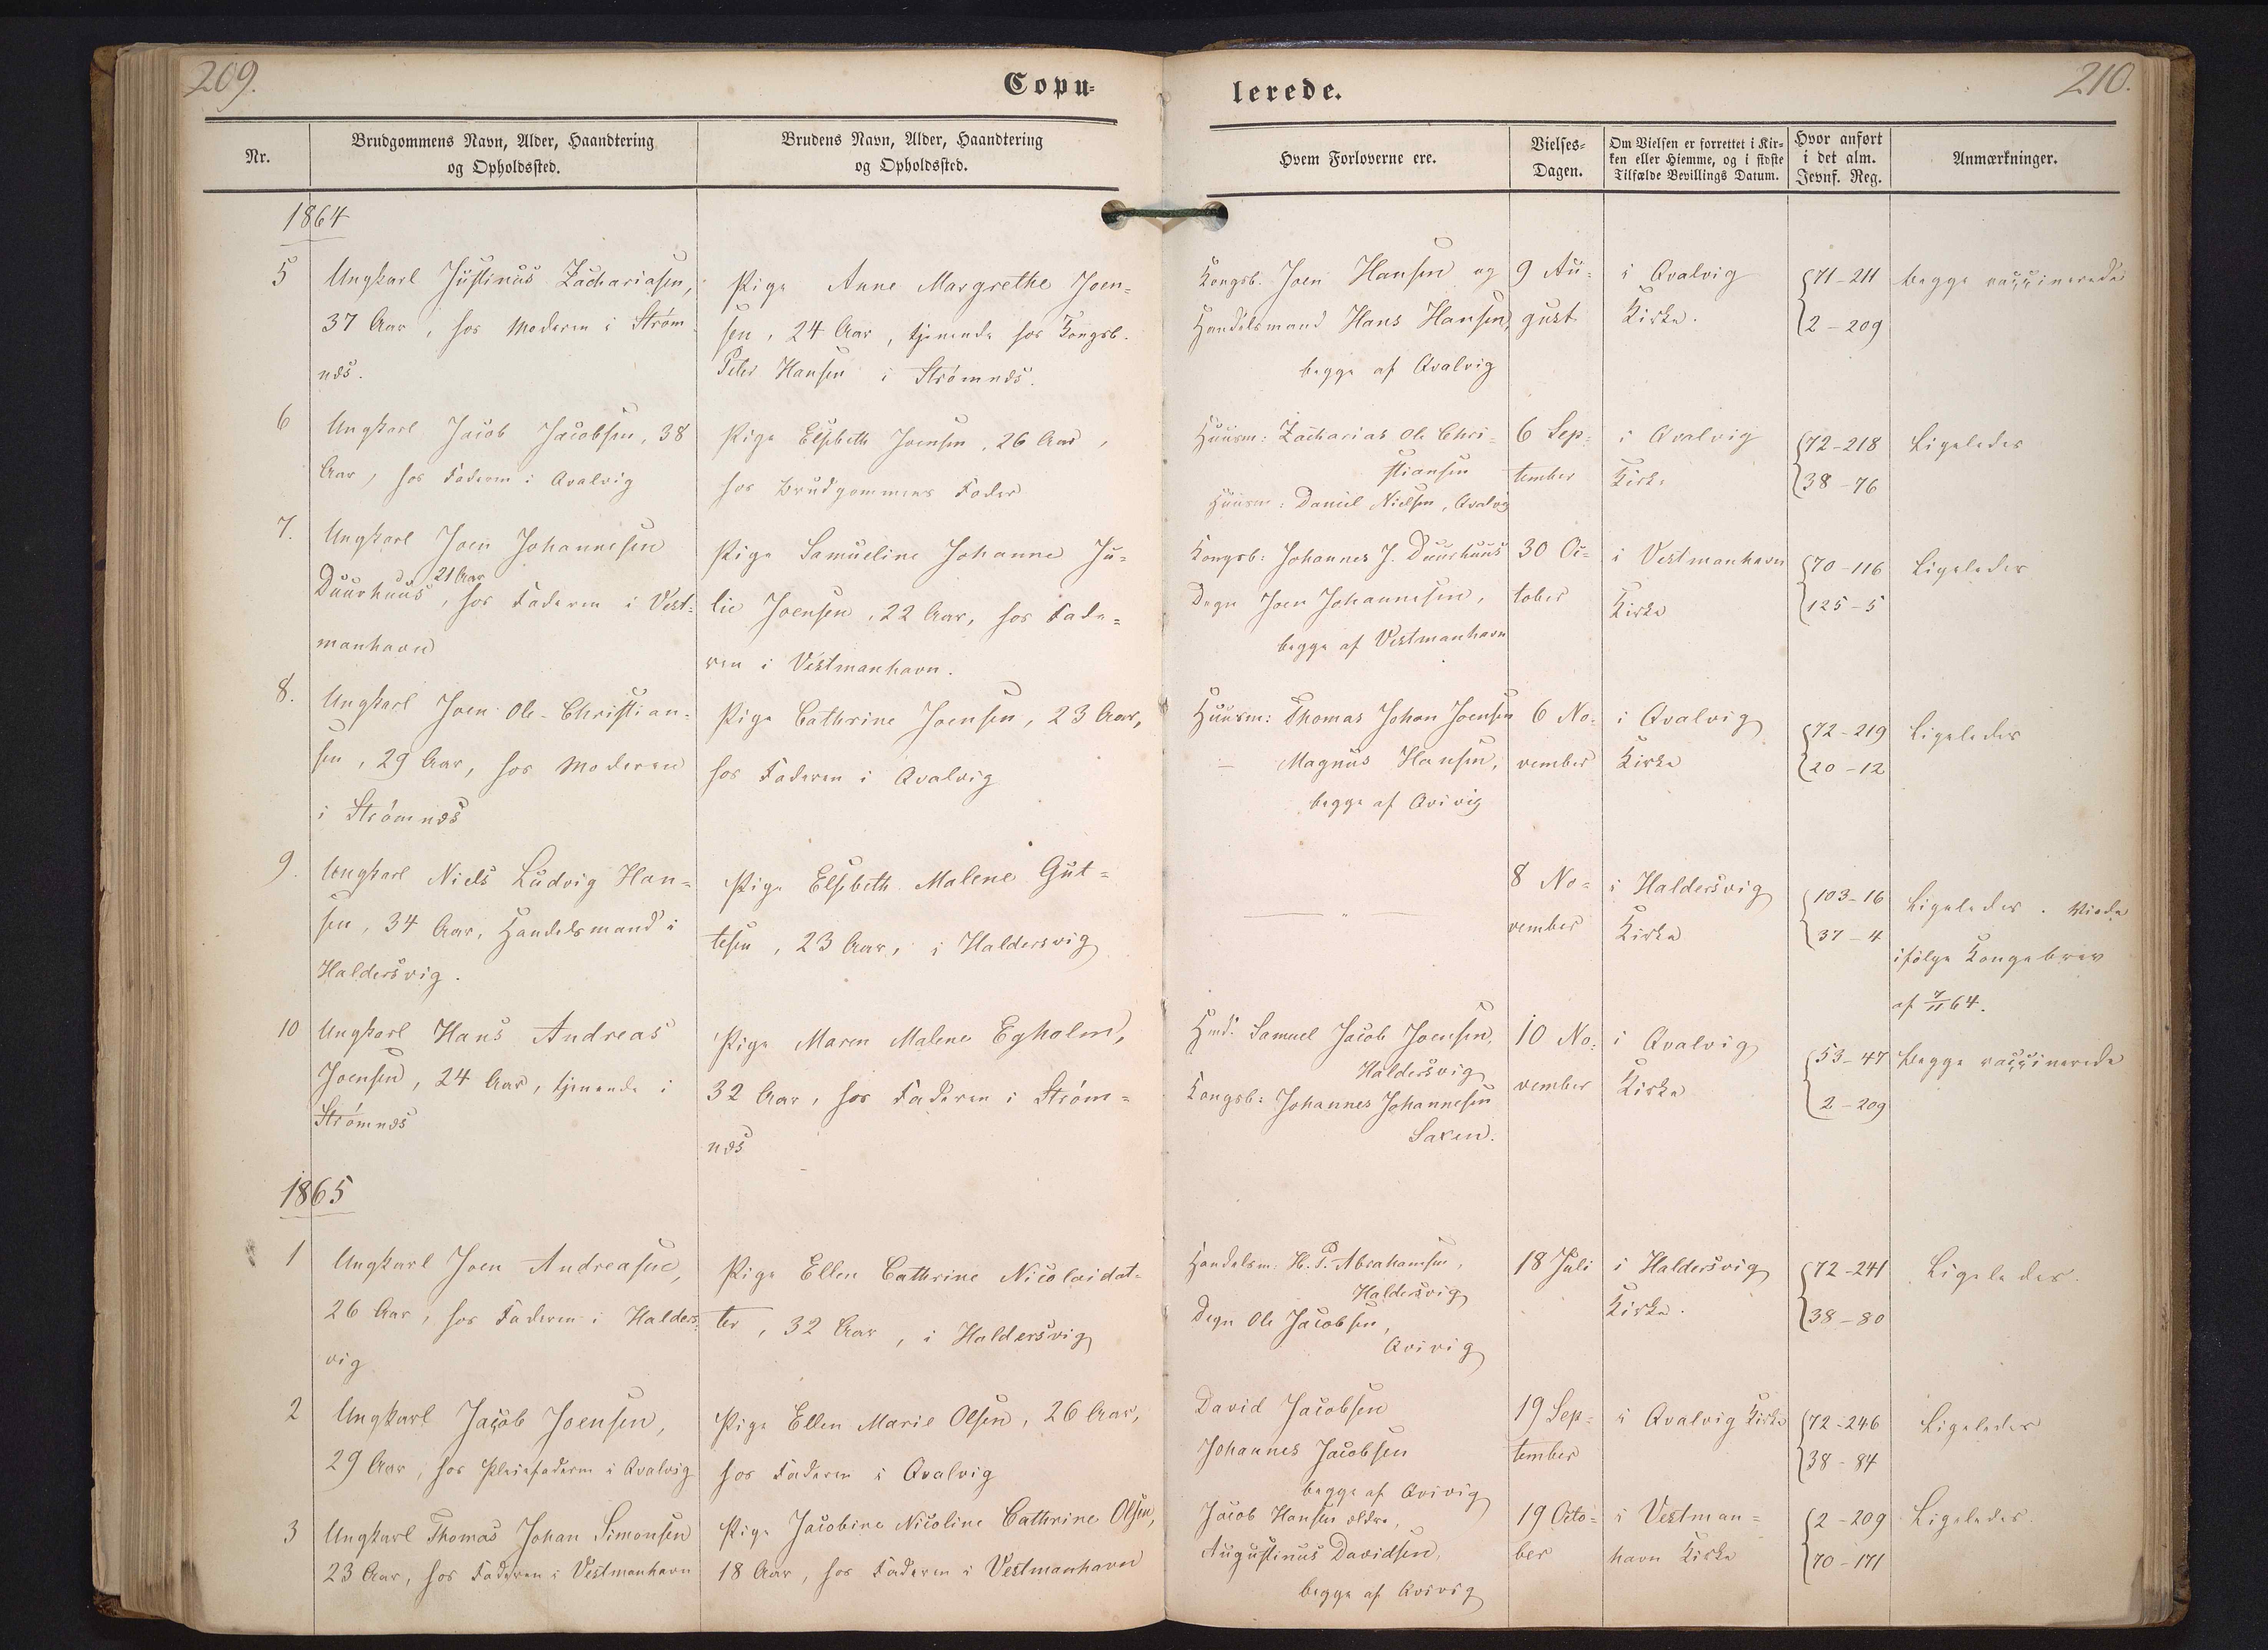 209.
Copu-
lerede.
210.
Nr.
Brudgommens Navn, Alder, Haandtering
og Opholdssted.
Brudens Navn, Alder, Haandtering
og Opholdssted.
Hvem Forloverne ere.
Vielses-
Dagen.
Om Vielsen er forrettet i Kir-
ken eller Hiemme, og i sidste
Tilfælde Bevillings Datum.
Hvor anført
i det alm.
Jevnf. Reg.
Anmærkninger.
1864
5
Ungkarl Justinus Zachariasen,
37 Aar, hos Moderen i Strøm
næs.
Pige Anne Margrethe Joen-
sen, 24 Aar, tjenende hos Kongsb.
Peter Hansen i Strømnæs.
Kongsb. Joen Hansen og
Handelsmand Hans Hansen,
begge af Qvalvig
9 Au-
gust
i Qvalvig
Kirke.
71-211
2-209
begge vaccinerede
6
Ungkarl Jacob Jacobsen, 38
Aar, hos Faderen i Qvalvig
Pige Elsebeth Joensen, 26 Aar,
hos Brudgommens Fader
Huusm: Zacharias Ole Chri-
stiansen
Huusm: Daniel Nielsen, Qvalvig
6 Sep-
tember
i Qvalvig
Kirke
72-218
38-76
Ligeledes
7.
Ungkarl Joen Johannesen
21 Aar
Duurhuus, hos Faderen i Vest-
manhavn
Pige Samueline Johanne Ju-
lie Joensen, 22 Aar, hos Fade-
ren i Vestmanhavn.
Kongsb: Johannes J. Duurhuus
Degn Joen Johannesen,
begge af Vestmanhavn
30 Oc-
tober
i Vestmanhavn
Kirke
70-116
125-5
Ligeledes
8.
Ungkarl Joen Ole-Christian-
sen, 29 Aar, hos Moderen
i Strømnæs
Pige Cathrine Joensen, 23 Aar,
hos Faderen i Qvalvig
Huusm: Thomas Johan Joensen
— Magnus Hansen,
begge af Qvivig
6 No-
vember
i Qvalvig
Kirke
72-219
20-12
Ligeledes
9.
Ungkarl Niels Ludvig Han-
sen, 34 Aar, Handelsmand i
Haldersvig.
Pige Elsebeth Malene Gut-
tesen, 23 Aar, i Haldersvig
— " —
8 No-
vember
i Haldersvig
Kirke
103-16
37-4
Ligeledes. Viede
ifølge Kongebrev
af 7/11 64.
10
Ungkarl Hans Andreas
Joensen, 24 Aar, tjenende i
Strømnæs
Pige Maren Malene Egholm,
32 Aar, hos Faderen i Strøm-
næs
Hmd. Samuel Jacob Joensen,
Haldersvig
Kongsb: Johannes Johannesen
Saxen.
10 No-
vember
i Qvalvig
Kirke
53-47
2-209
begge vaccinerede
1865
1
Ungkarl Joen Andreasen,
26 Aar, hos Faderen i Halders-
vig
Pige Ellen Cathrine Nicolaidat-
ter, 32 Aar, i Haldersvig
Handelsm: H. P. Abrahamsen,
Haldersvig
Degn Ole Jacobsen,
Qvivig
18 Juli
i Haldersvig
Kirke.
72-241
38-80
Ligeledes.
2
Ungkarl Jacob Joensen,
29 Aar, hos Pleiefaderen i Qvalvig
Pige Ellen Marie Olsen, 26 Aar,
hos Faderen i Qvalvig
David Jacobsen
Johannes Jacobsen
begge af Qvivig
19 Sep-
tember
i Qvalvig Kirke
72-246
38-84
Ligeledes
3
Ungkarl Thomas Johan Simonsen
23 Aar, hos Faderen i Vestmanhavn
Pige Jacobine Nicoline Cathrine Olsen,
18 Aar, hos Faderen i Vestmanhavn
Jacob Hansen ældre,
Augustinus Davidsen,
begge af Qvivig
19 Octo-
ber
i Vestman-
havn Kirke
2-209
70-171
Ligeledes.